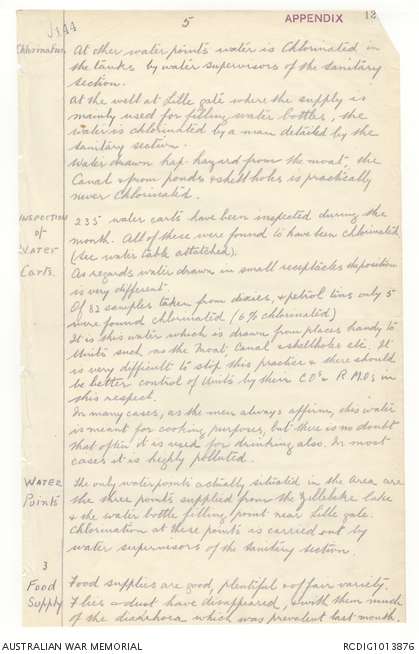 J144
5
APPENDIX 12
Chlorination At other water points water is Chlorinated in
the tanks by water supervisors of the sanitary
section.
At the well at Lille gate where the supply is
mainly used for filling water bottles, the
water is chlorinated by a man detailed by the
sanitary section.
Water drawn hap-hazard from the moat, the
Canal & from ponds & shell holes is practically
never Chlorinated.
INSPECTION of WATER Carts. 235 water carts have been inspected during the
month. All of these were found to have been chlorinated
(see water table attatched).
As regards water drawn in small receptacles disposition
is very different.
Of 82 samples taken from dixies, & petrol tins only 5
were found chlorinated (6% chlorinated)
It is this water which is drawn from places handy to
Units such as the Moat, Canal & shellholes etc. It
is very difficult to stop this practice & there should
be better control of Units by their C.O's & R.M.Os in
this respect.
In many cases, as the men always affirm, this water
is meant for cooking purposes, but there is no doubt
that often it is used for drinking also. In most
cases it is highly polluted.
WATER Points The only waterpoints actually situated in the Area are
the three points supplied from the Zillebeke lake
& the water bottle filling point near Lille gate.
Chlorination at these points is carried out by
water supervisors of the sanitary section.
3
Food Supply Food supplies are good, plentiful & of fair variety.
Flies & dust have disappeared, & with them much
of the diarrhoea which was prevalent last month.
AUSTRALIAN WAR MEMORIAL
RCDIG1013876